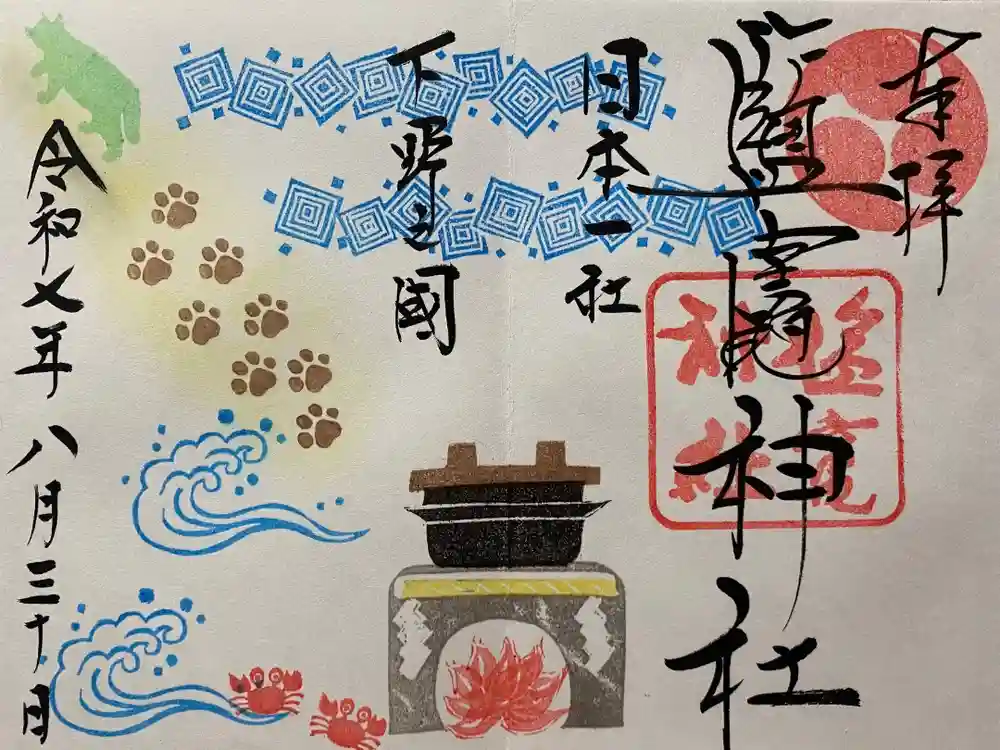 奉拝
鹽竈神社
日本一社
下野之國
令和七年八月三十日